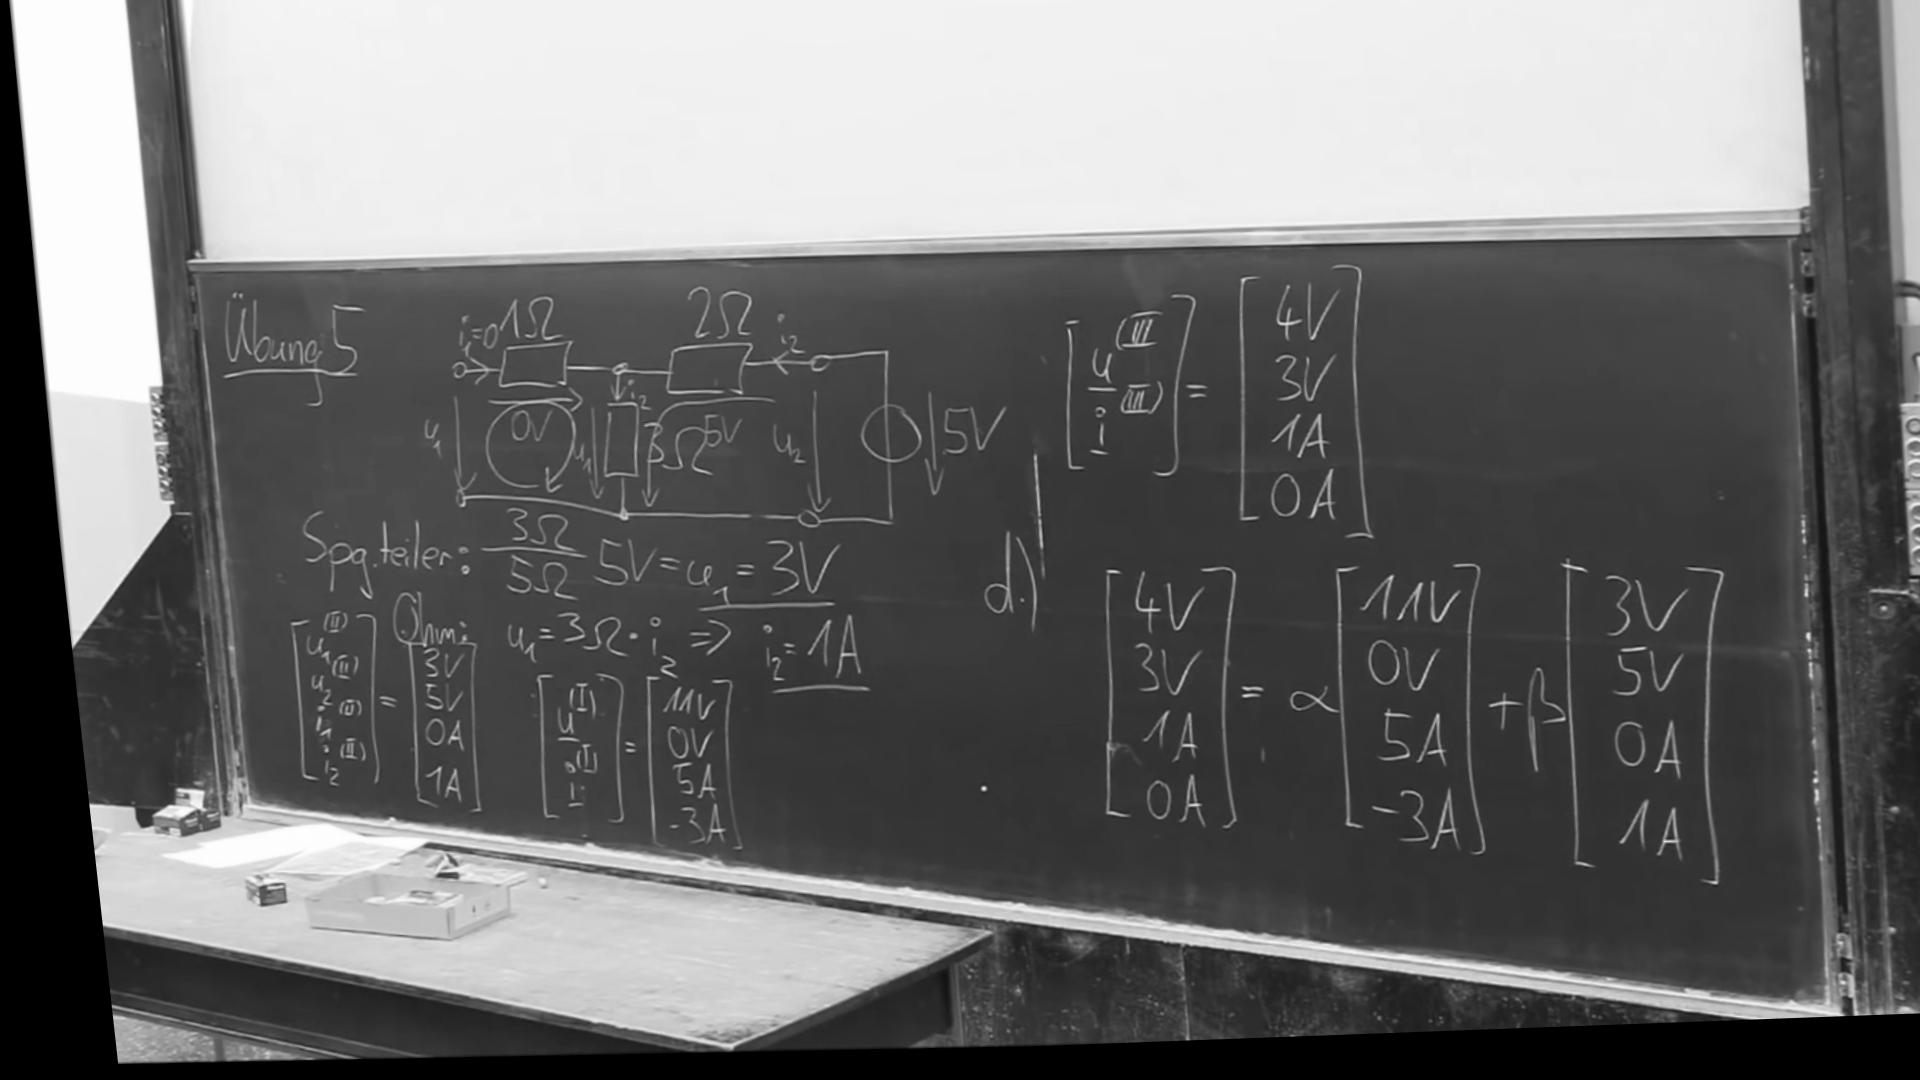 Übung 5
i₁=0 1Ω 2Ω i₂
i₂
u₁ 0V u₁ 3Ω 5V u₂ 5V
Spg.teiler: 3Ω/5Ω 5V = u₁ = 3V
Ohm: u₁ = 3Ω · i₂ ⇒ i₂ = 1A
[u₁^(II) u₂^(II) i₁^(II) i₂^(II)] = [3V 5V 0A 1A]
[u^(I) i^(I)] = [11V 0V 5A -3A]
[u^(III) i^(III)] = [4V 3V 1A 0A]
d.)
[4V 3V 1A 0A] = α [11V 0V 5A -3A] + β [3V 5V 0A 1A]